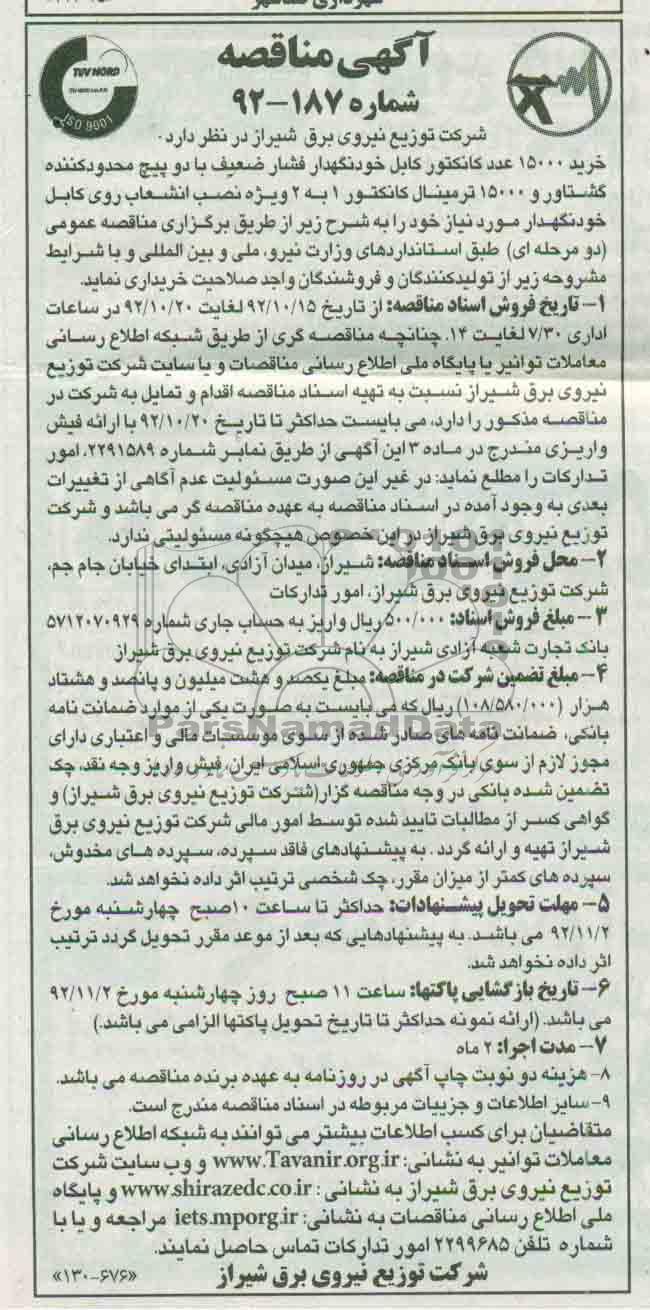 آگهی مناقصه
شماره ۱۸۷-۹۲
TUV NORD
ISO 9001
شرکت توزیع نیروی برق شیراز در نظر دارد.
خرید ۱۵۰۰۰ عدد کانکتور کابل خودنگهدار فشار ضعیف با دو پیچ محدودکننده
گشتاور و ۱۵۰۰۰ ترمینال کانکتور ۱ به ۲ ویژه نصب انشعاب روی کابل
خودنگهدار مورد نیاز خود را به شرح زیر از طریق برگزاری مناقصه عمومی
(دو مرحله ای) طبق استانداردهای وزارت نیرو، ملی و بین المللی و با شرایط
مشروحه زیر از تولیدکنندگان و فروشندگان واجد صلاحیت خریداری نماید.
۱- تاریخ فروش اسناد مناقصه: از تاریخ ۹۲/۱۰/۱۵ لغایت ۹۲/۱۰/۲۰ در ساعات
اداری ۷/۳۰ لغایت ۱۴. چنانچه مناقصه گری از طریق شبکه اطلاع رسانی
معاملات توانیر یا پایگاه ملی اطلاع رسانی مناقصات و یا سایت شرکت توزیع
نیروی برق شیراز نسبت به تهیه اسناد مناقصه اقدام و تمایل به شرکت در
مناقصه مذکور را دارد، می بایست حداکثر تا تاریخ ۹۲/۱۰/۲۰ با ارائه فیش
واریزی مندرج در ماده ۳ این آگهی از طریق نمابر شماره ۲۲۹۱۵۸۹، امور
تدارکات را مطلع نماید: در غیر این صورت مسئولیت عدم آگاهی از تغییرات
بعدی به وجود آمده در اسناد مناقصه به عهده مناقصه گر می باشد و شرکت
توزیع نیروی برق شیراز در این خصوص هیچگونه مسئولیتی ندارد.
۲- محل فروش اسناد مناقصه: شیراز، میدان آزادی، ابتدای خیابان جام جم،
شرکت توزیع نیروی برق شیراز، امور تدارکات
۳- مبلغ فروش اسناد: ۵۰۰/۰۰۰ ریال واریز به حساب جاری شماره ۵۷۱۲۰۷۰۹۲۹
بانک تجارت شعبه آزادی شیراز به نام شرکت توزیع نیروی برق شیراز
۴- مبلغ تضمین شرکت در مناقصه: مبلغ یکصد و هشت میلیون و پانصد و هشتاد
هزار (۱۰۸/۵۸۰/۰۰۰) ریال که می بایست به صورت یکی از موارد ضمانت نامه
ParsNamadData
بانکی، ضمانت نامه های صادر شده از سوی موسسات مالی و اعتباری دارای
مجوز لازم از سوی بانک مرکزی جمهوری اسلامی ایران، فیش واریز وجه نقد، چک
تضمین شده بانکی در وجه مناقصه گزار(شرکت توزیع نیروی برق شیراز) و
گواهی کسر از مطالبات تایید شده توسط امور مالی شرکت توزیع نیروی برق
شیراز تهیه و ارائه گردد. به پیشنهادهای فاقد سپرده، سپرده های مخدوش،
سپرده های کمتر از میزان مقرر، چک شخصی ترتیب اثر داده نخواهد شد.
۵- مهلت تحویل پیشنهادات: حداکثر تا ساعت ۱۰صبح چهارشنبه مورخ
۹۲/۱۱/۲ می باشد. به پیشنهادهایی که بعد از موعد مقرر تحویل گردد ترتیب
اثر داده نخواهد شد.
۶- تاریخ بازگشایی پاکتها: ساعت ۱۱ صبح روز چهارشنبه مورخ ۹۲/۱۱/۲
می باشد. (ارائه نمونه حداکثر تا تاریخ تحویل پاکتها الزامی می باشد.)
۷- مدت اجرا: ۲ ماه
۸- هزینه دو نوبت چاپ آگهی در روزنامه به عهده برنده مناقصه می باشد.
۹- سایر اطلاعات و جزییات مربوطه در اسناد مناقصه مندرج است.
متقاضیان برای کسب اطلاعات بیشتر می توانند به شبکه اطلاع رسانی
معاملات توانیر به نشانی: www.Tavanir.org.ir و وب سایت شرکت
توزیع نیروی برق شیراز به نشانی : www.shirazedc.co.ir و پایگاه
ملی اطلاع رسانی مناقصات به نشانی: iets.mporg.ir مراجعه و یا با
شماره تلفن ۲۲۹۹۶۸۵ امور تدارکات تماس حاصل نمایند.
شرکت توزیع نیروی برق شیراز
«۱۳۰-۶۷۶»